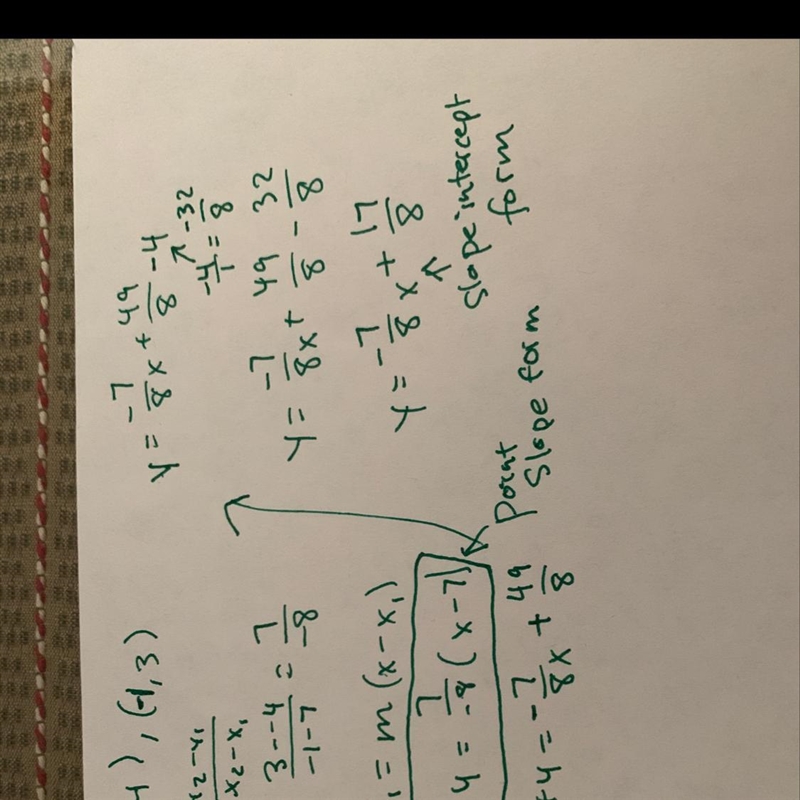 4), (-1,3)
y₂-y₁/x₂-x₁
3--4/-1-7 = 7/-8
= m(x-x₁)
4 = 7/-8(x-7)
+4 = -7/8x + 49/8
Point
Slope form
y = -7/8x + 49/8 - 4
-4/1 = -32/8
y = -7/8x + 49/8 - 32/8
y = -7/8x + 17/8
Slope intercept
form